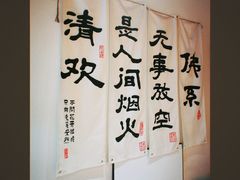 佛系
无事放空
是人间烟火
清欢